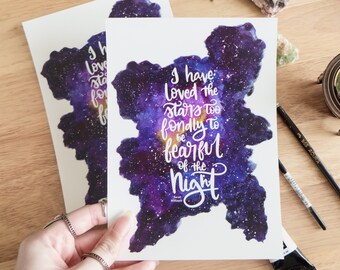 I have
Loved the
stars too
fondly to
be
fearful
of the
Night
I have
Loved
stars
fondly
be